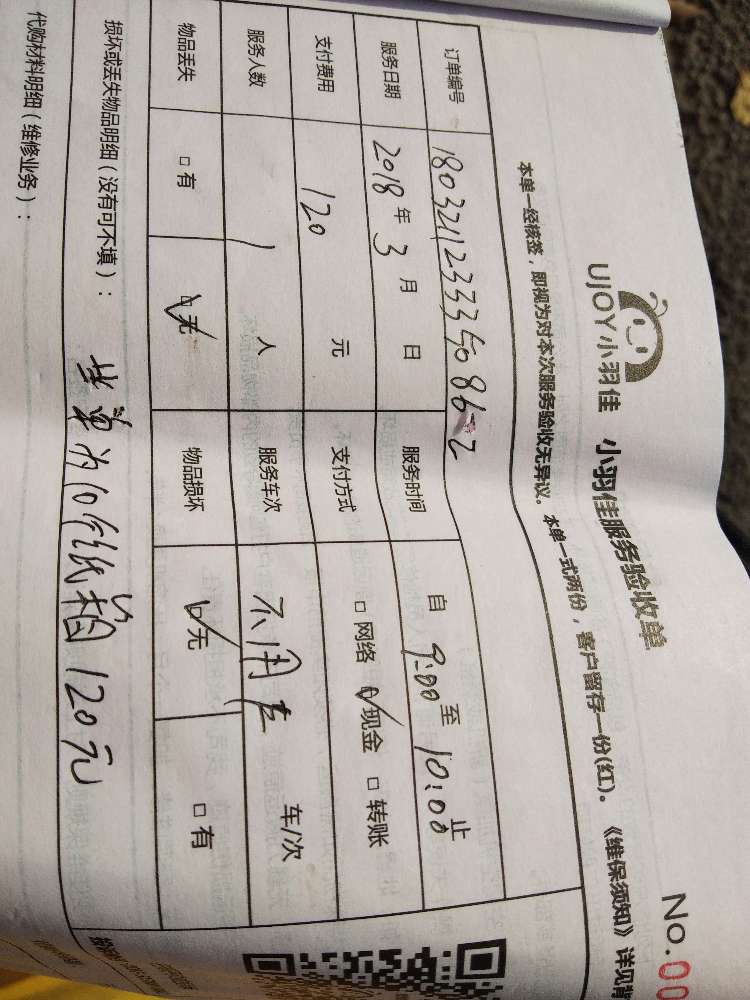 No.00
UJOY小羽佳 小羽佳服务验收单
本单一经核签，即视为对本次服务验收无异议。本单一式两份，客户留存一份(红)。《维保须知》详见背
订单编号 180321123335086 2
服务日期 2018年3月 日 服务时间 自 9:00 至 10:00 止
支付费用 120 元 支付方式 □ 网络 □现金 □ 转账
服务人数 1 人 服务车次 不用车 车/次
物品丢失 □ 有 □无 物品损坏 □无 □ 有
损坏或丢失物品明细（没有可不填）： 单为10个纸箱 120元
代购材料明细（维修业务）：